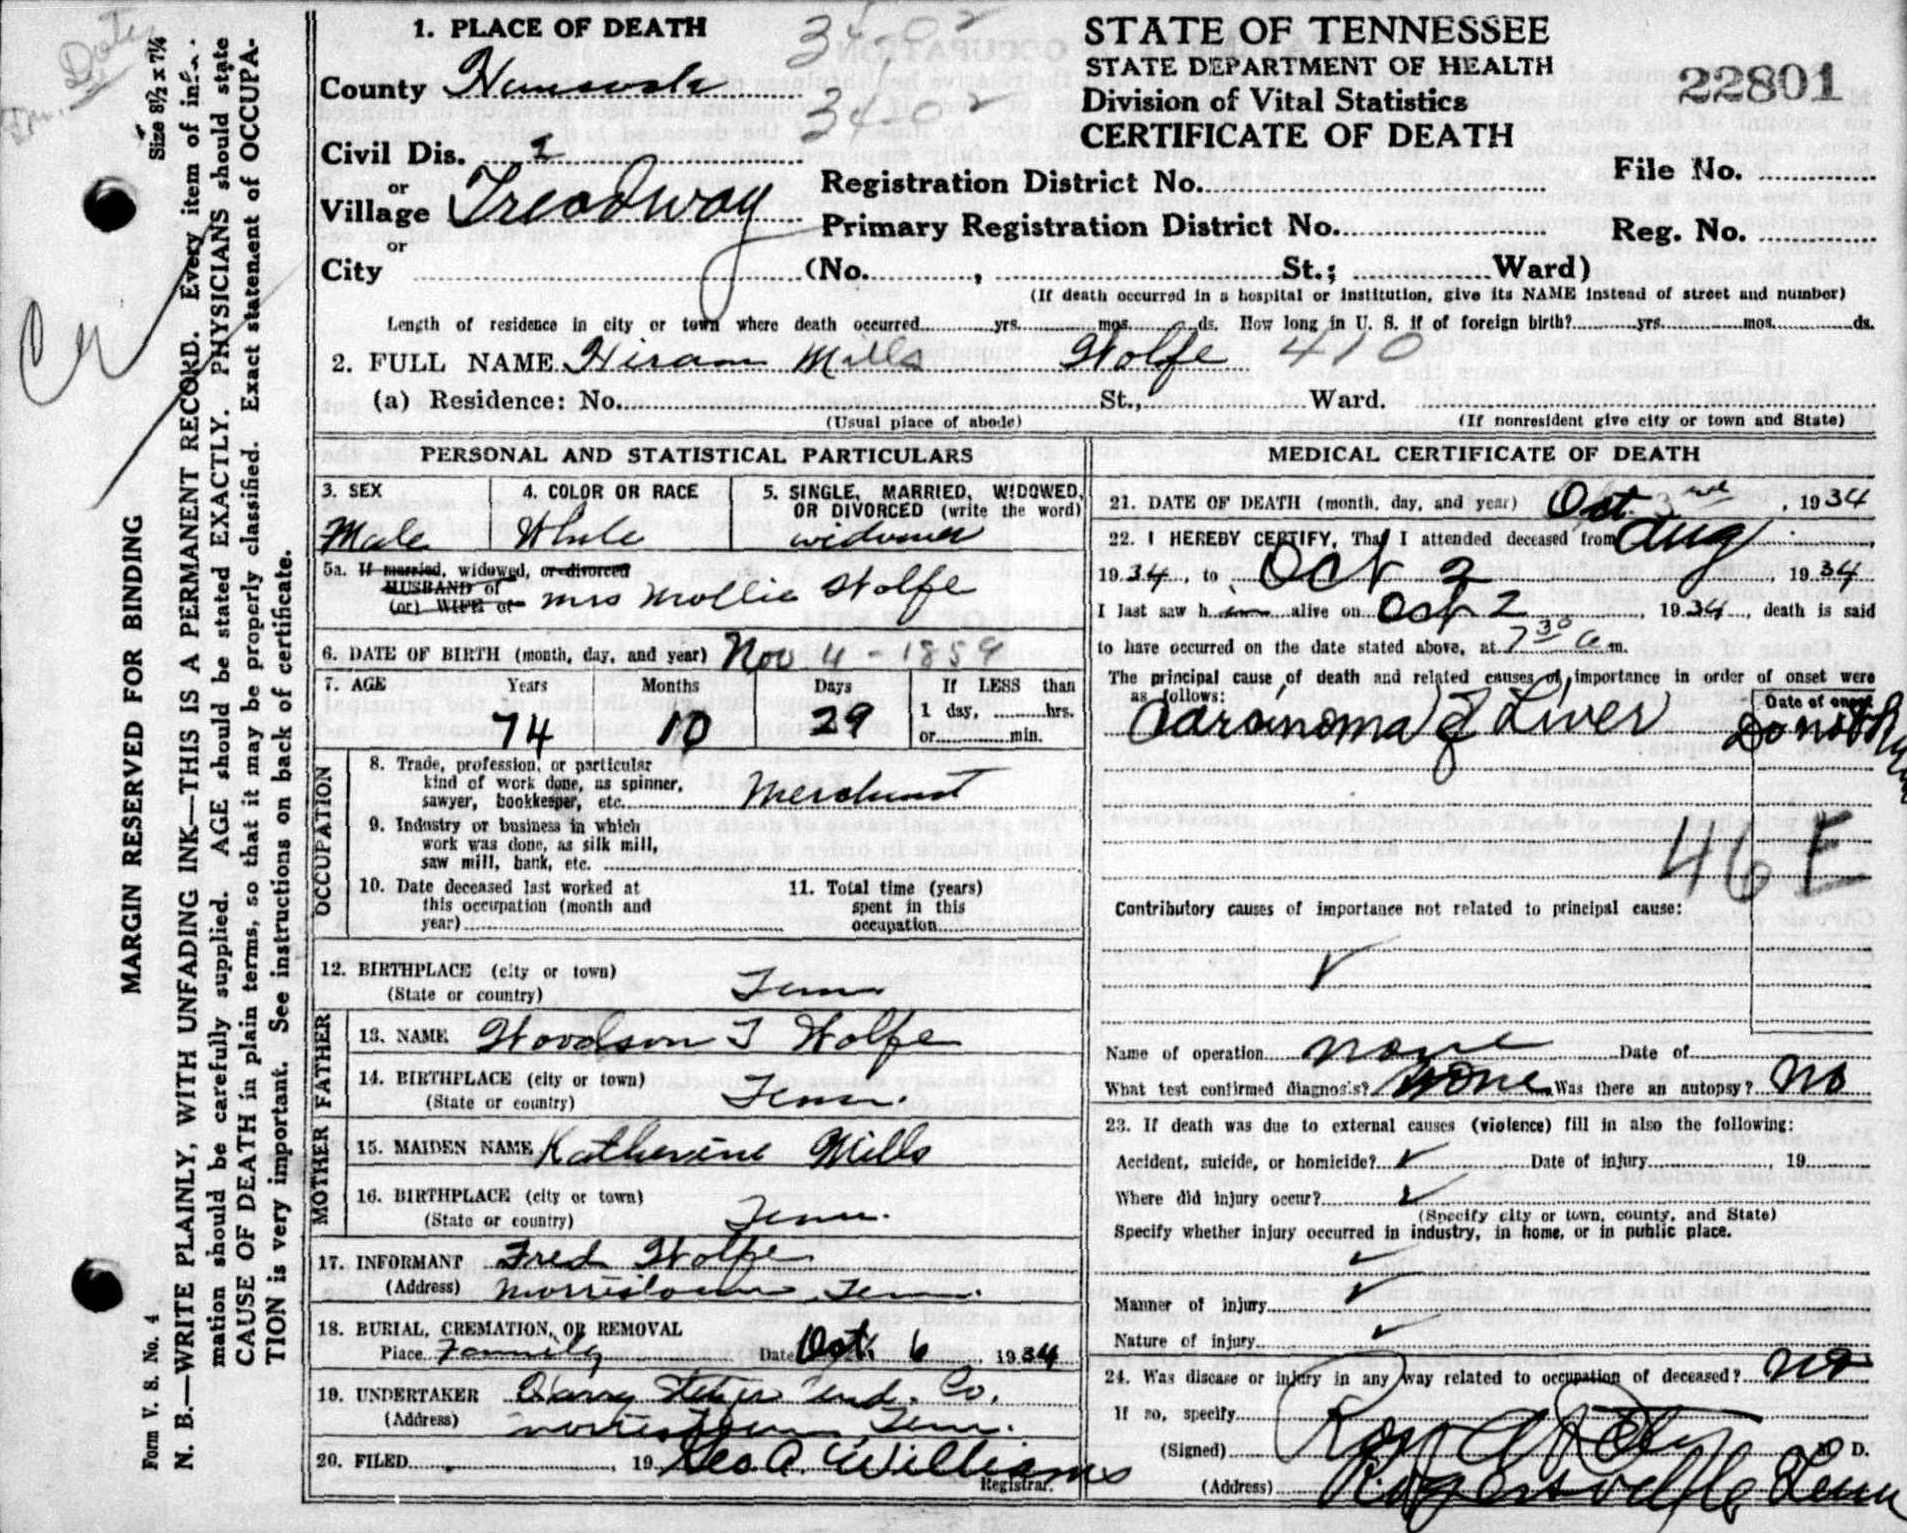 1. PLACE OF DEATH
STATE OF TENNESSEE
STATE DEPARTMENT OF HEALTH
Division of Vital Statistics
CERTIFICATE OF DEATH
22801
3402
34202
County
Civil Dis. 2
or
Village Treadway
or
City (No. , St.; Ward)
Registration District No.
File No.
Primary Registration District No.
Reg. No.
(If death occurred in a hospital or institution, give its NAME instead of street and number)
Length of residence in city or town where death occurred yrs. mos. ds. How long in U. S. if of foreign birth? yrs. mos. ds.
2. FULL NAME Hiram Mills Wolfe 410
(a) Residence: No. St., Ward.
(Usual place of abode) (If nonresident give city or town and State)
PERSONAL AND STATISTICAL PARTICULARS
3. SEX
Male
4. COLOR OR RACE
White
5. SINGLE, MARRIED, WIDOWED,
OR DIVORCED (write the word)
widower
5a. If married, widowed, or divorced
HUSBAND of
(or) WIFE of Mrs Mollie Wolfe
6. DATE OF BIRTH (month, day, and year) Nov 4 - 1859
7. AGE Years Months Days If LESS than
1 day, hrs.
or min.
74 10 29
OCCUPATION
8. Trade, profession, or particular
kind of work done, as spinner,
sawyer, bookkeeper, etc. Merchant
9. Industry or business in which
work was done, as silk mill,
saw mill, bank, etc.
10. Date deceased last worked at
this occupation (month and
year)
11. Total time (years)
spent in this
occupation
12. BIRTHPLACE (city or town)
(State or country) Tenn
FATHER
13. NAME Woodson T Wolfe
14. BIRTHPLACE (city or town)
(State or country) Tenn.
MOTHER
15. MAIDEN NAME Katherine Mills
16. BIRTHPLACE (city or town)
(State or country) Tenn.
17. INFORMANT Fred Wolfe
(Address) Morristown, Tenn.
18. BURIAL, CREMATION, OR REMOVAL
Place Family Date Oct 6, 1934
19. UNDERTAKER Harry Und. Co.
(Address) Morristown, Tenn.
20. FILED , 19 Geo A. Williams
Registrar.
MEDICAL CERTIFICATE OF DEATH
21. DATE OF DEATH (month, day, and year) Oct. 3rd, 1934
22. I HEREBY CERTIFY, That I attended deceased from Aug ,
1934, to Oct 2, 1934
I last saw him alive on Oct 2, 1934, death is said
to have occurred on the date stated above, at 7 30 a m.
The principal cause of death and related causes of importance in order of onset were
as follows:
Date of onset
Carcinoma of Liver
Do not
46E
Contributory causes of importance not related to principal cause:
Name of operation none Date of
What test confirmed diagnosis? None Was there an autopsy? No
23. If death was due to external causes (violence) fill in also the following:
Accident, suicide, or homicide? Date of injury , 19
Where did injury occur?
(Specify city or town, county, and State)
Specify whether injury occurred in industry, in home, or in public place.
Manner of injury
Nature of injury
24. Was disease or injury in any way related to occupation of deceased? not
If so, specify
(Signed) M. D.
(Address) Rogersville Tenn
MARGIN RESERVED FOR BINDING
Size 8½ x 7¼
N. B.—WRITE PLAINLY, WITH UNFADING INK—THIS IS A PERMANENT RECORD. Every item of infor-
mation should be carefully supplied. AGE should be stated EXACTLY. PHYSICIANS should state
CAUSE OF DEATH in plain terms, so that it may be properly classified. Exact statement of OCCUPA-
TION is very important. See instructions on back of certificate.
Form V. S. No. 4